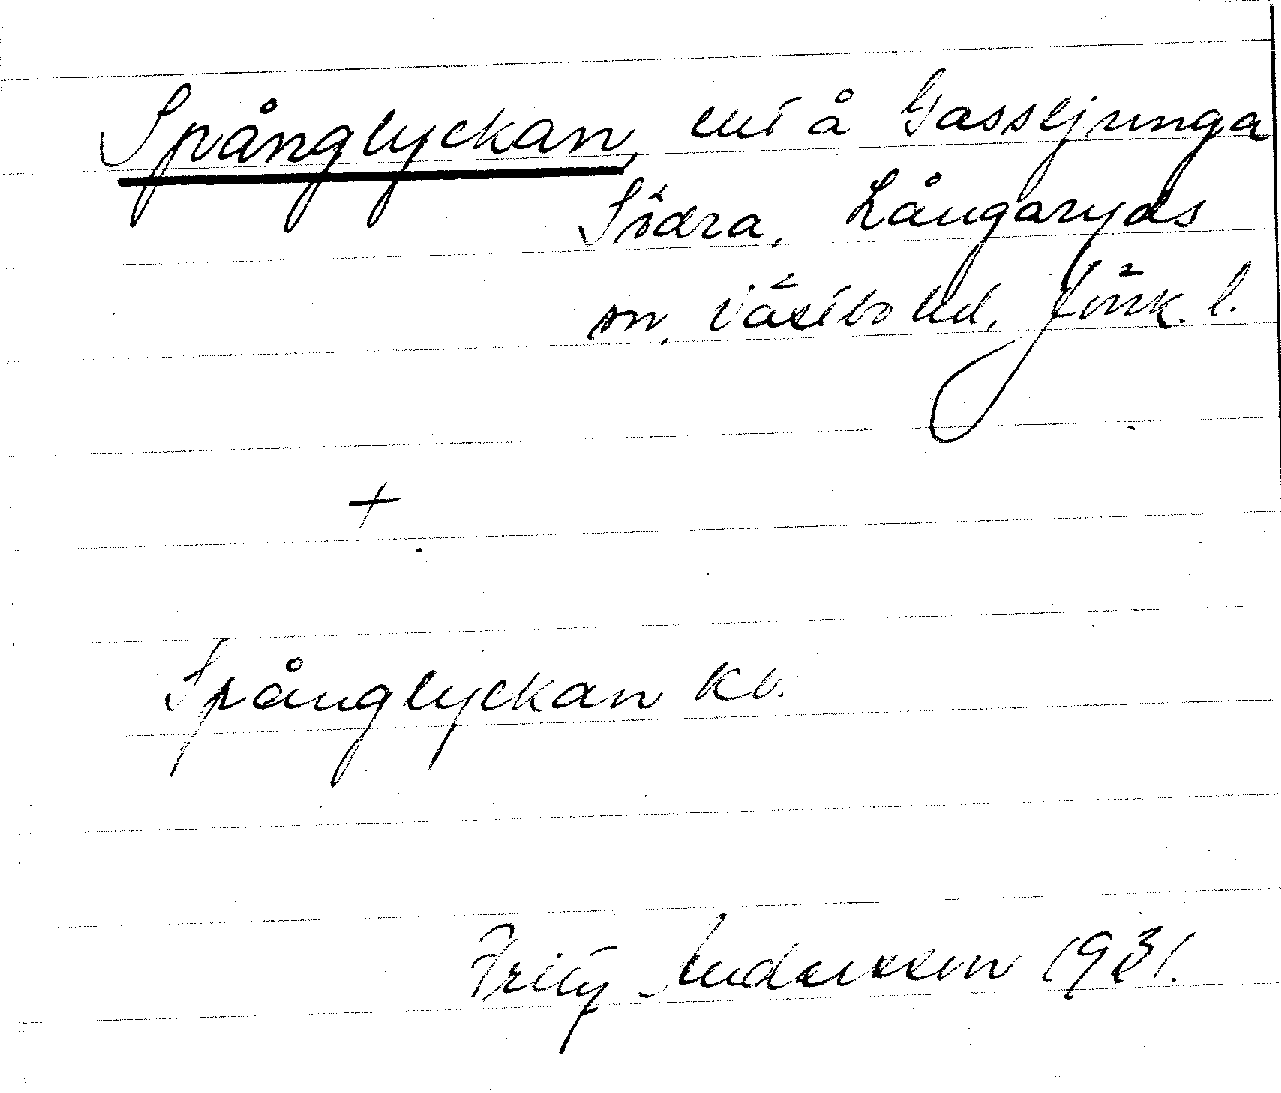 Spånglyckan, ent å Gassljunga
Södra, Långaryds
sn, Västbo hd, Jönk. l.
+
Spånglyckan Kb.
Fritz Andersson 1931.